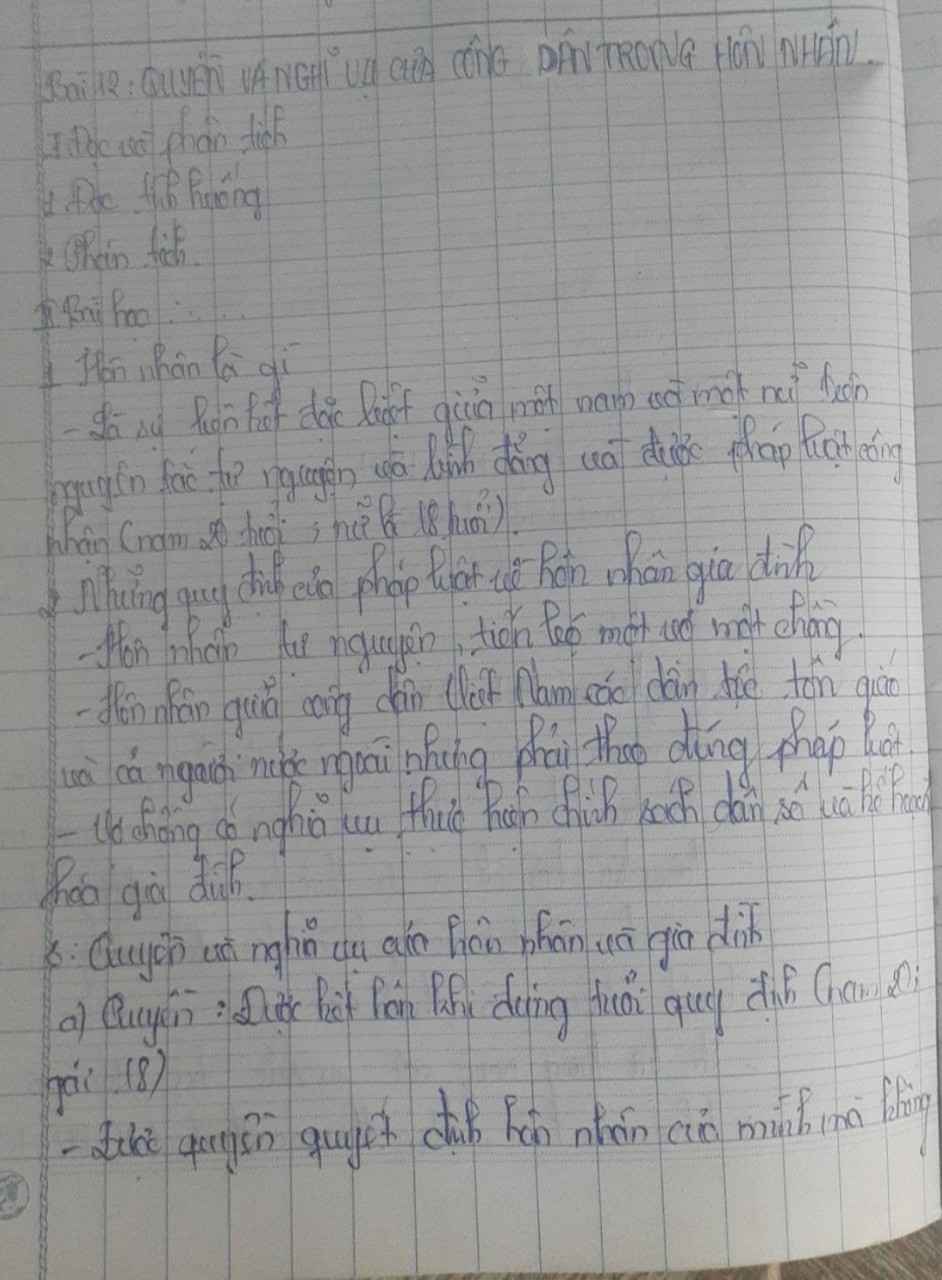 Bài 12: QUYỀN VÀ NGHĨ VỤ CỦA CÔNG DÂN TRONG HÔN NHÂN.
I Đọc và phân tích
1 Đọc tình huống
2 Phân tích.
II Bài học
1 Hôn nhân là gì
- Là sự liên kết đặc biệt giữa một nam và một nữ trên
nguyên tắc tự nguyện và bình đẳng và được pháp luật công
nhận (nam 20 tuổi; nữ là 18 tuổi).
2 Những quy định của pháp luật về hôn nhân gia đình
- Hôn nhân tự nguyện, tiến bộ một vợ một chồng.
- Hôn nhân giữa công dân Việt Nam các dân tộc tôn giáo
và cả người nước ngoài nhưng phải theo đúng pháp luật.
- Vợ chồng có nghĩa vụ thực hiện chính sách dân số và kế hoạch
hóa gia đình.
3: Quyền và nghĩa vụ của hôn nhân và gia đình
a) Quyền: Được kết hôn khi đúng tuổi quy định (nam 20;
gái 18)
- Được quyền quyết định hôn nhân của mình mà không